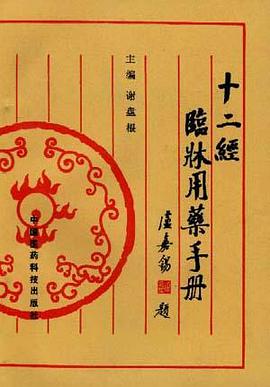 十二經
臨牀用藥手册
盧嘉錫 題
主编 谢盘根
中国医药科技出版社